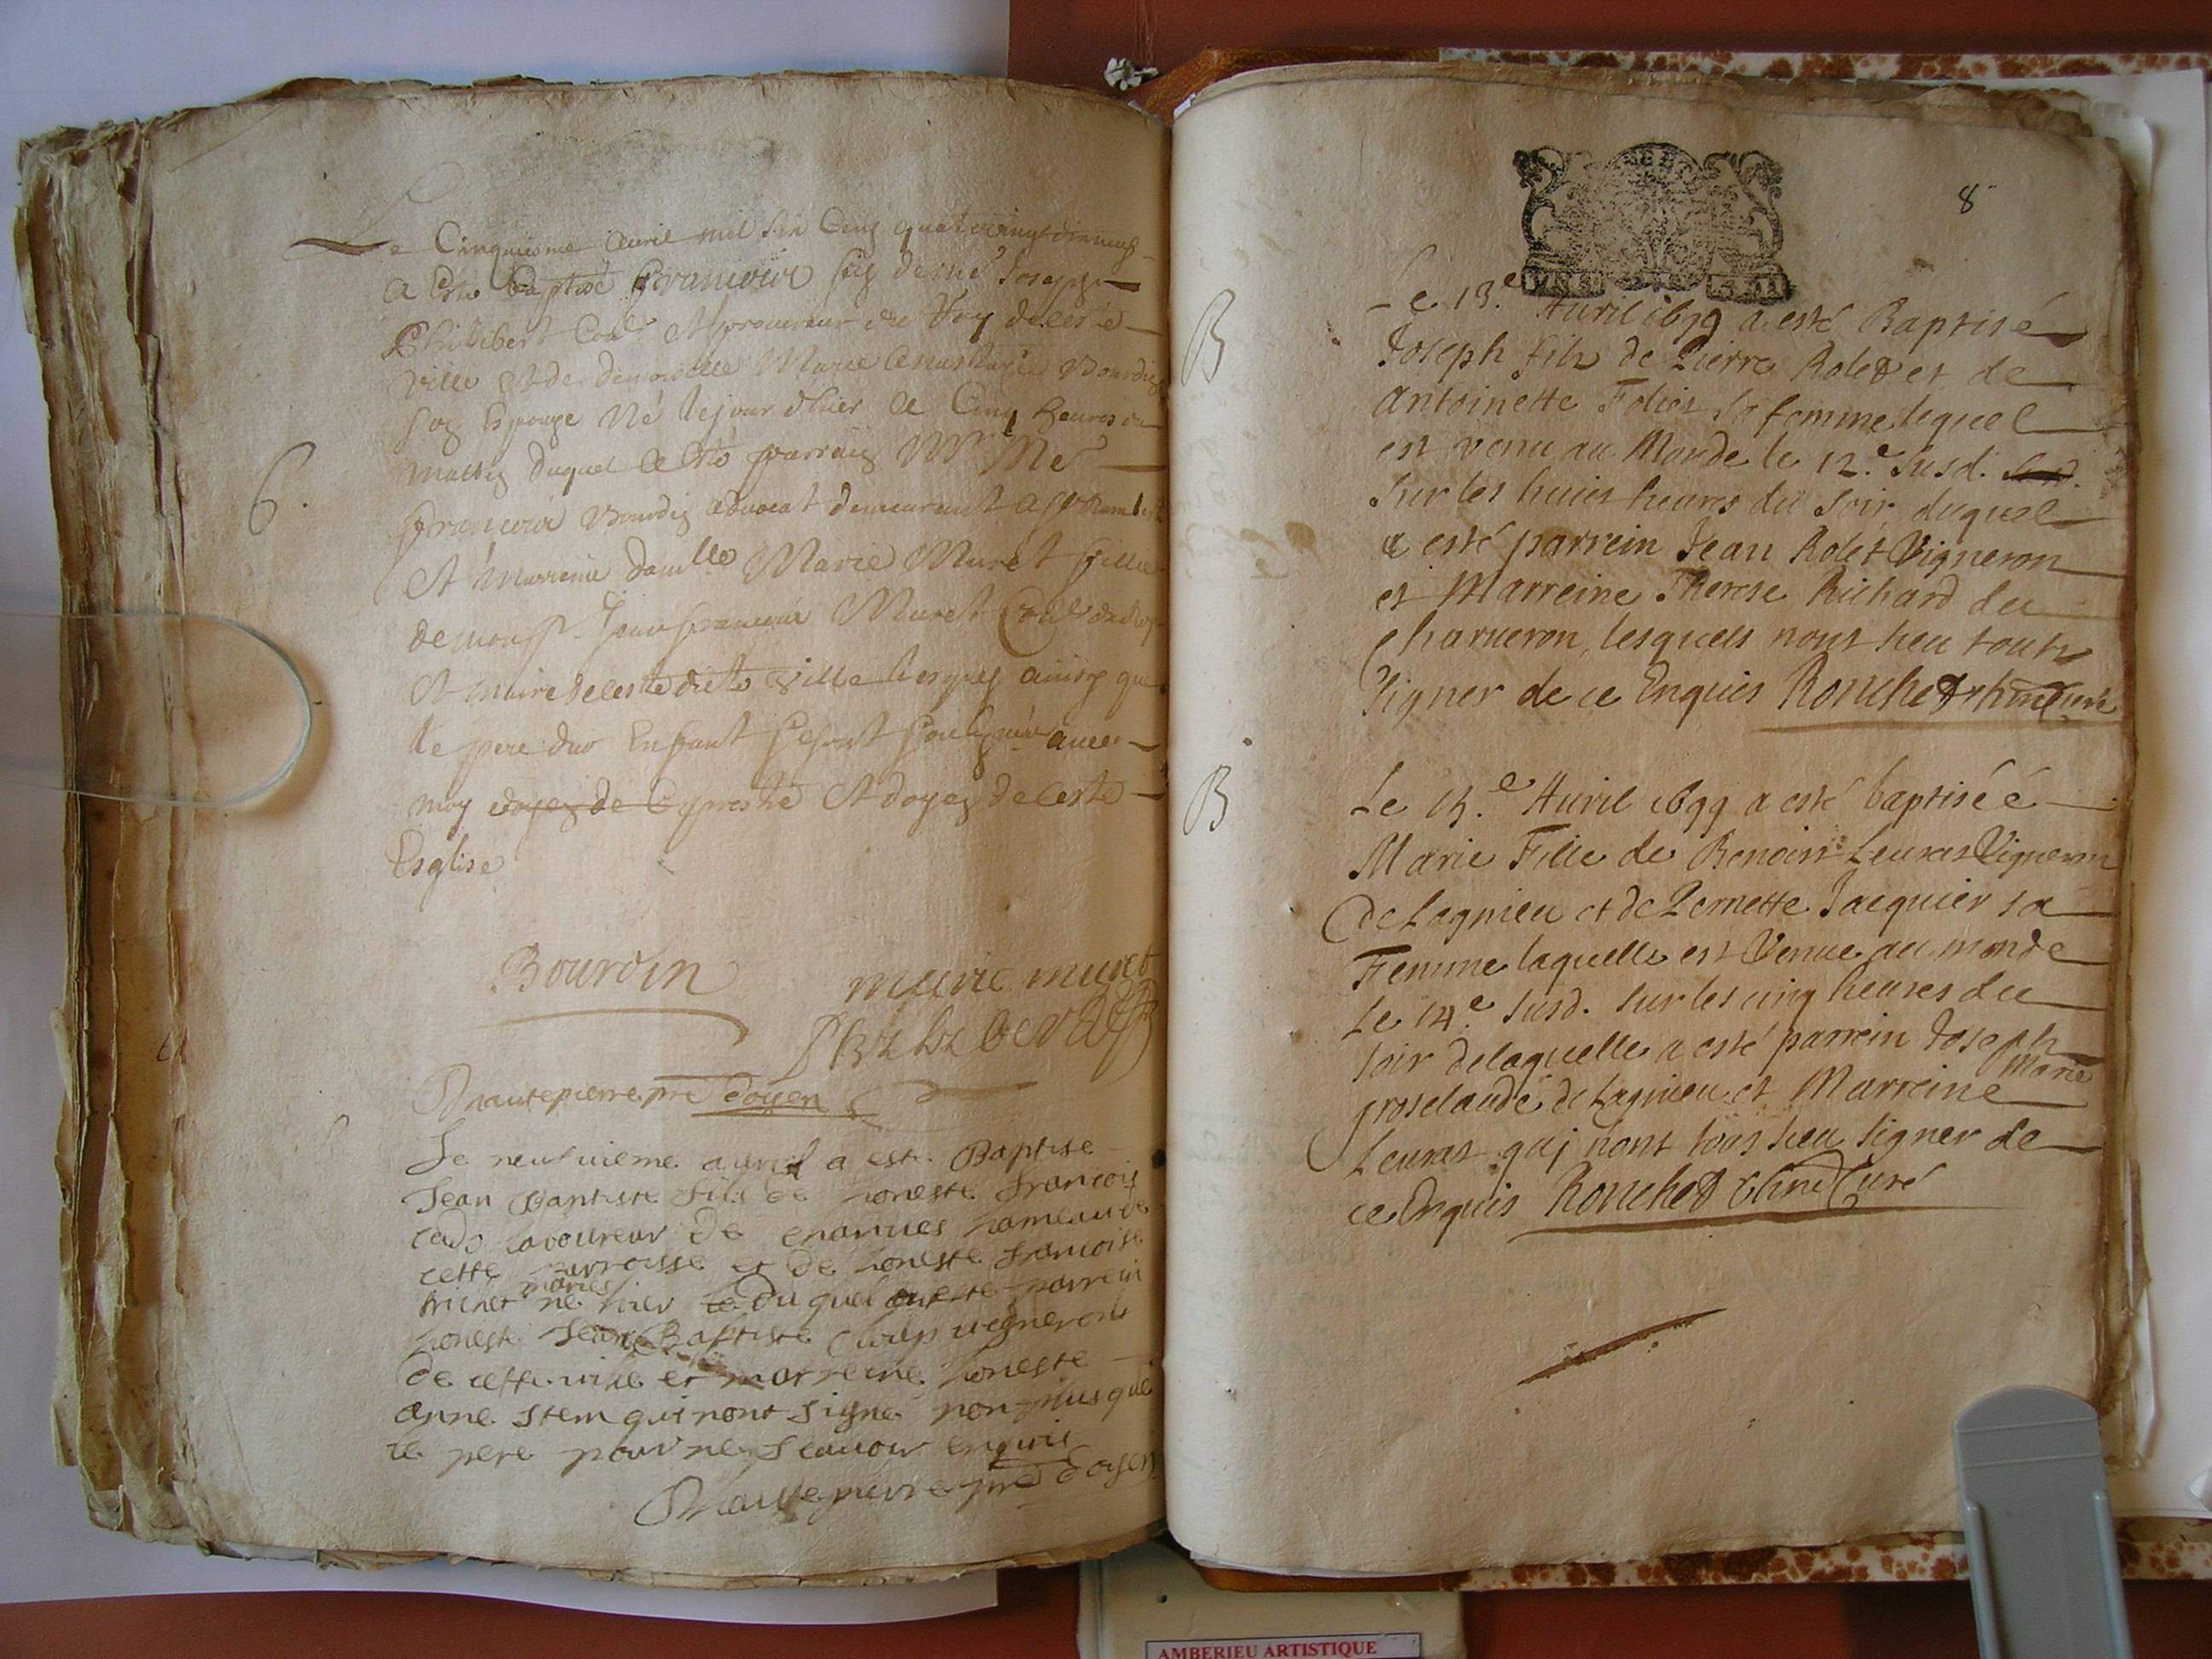 Le Cinquiesme Auril mil six Cens quatreuingtdixneuf
a Esté Baptisé Francois fils de Me Joseph
Philibert Conr et procureur du Roy de ceste
ville et de demoiselle Marie Bourdin
son Espouze Né le jour d'hier a Cinq heures du
mattin duquel a esté parrain Mr Me
Francois Bourdin aduocat demeurant a St Rambert
et Marreine damlle Marie Muret fillie
de monsr Jean francois Muret Conr du Roy
et maire de cestedicte ville lesquels ainsy que
le pere dud Enfant se sont soubsignés auec
moy doyen de prestre et doyen de ceste
Esglise
6.
Bourdin
marie muret
Philibert
Dhautepierre pre doyen
Le neufuieme auril a este Baptise
Jean Baptiste fils de honeste francois
laboureur de hameau de
cette parroisse et de honeste francoise
maries
ne hier duquel a este parrein
honeste Jean Baptiste vigneron
de cette ville et marreine honeste
anne Item qui nont signe non plus que
le pere pour ne scauoir enquis
Dhautepierre pre doyen
8
B
Le 13.e Auril 1699 a esté Baptisé
Joseph fils de Pierre Rolet et de
Antoinette Folier sa femme lequel
est venu au Monde le 12.e Susd.
Sur les huict heures du Soir duquel
a esté parrein Jean Rolet Vigneron
et Marreine Therese Richard du
Charueron, lesquels nont sceu touts
Signer de ce Enquis Ronchet Curé
B
Le 15.e Auril 1699 a esté baptiséé
Marie Fille de Benoist Leuras Vigneron
de Lagnieu et de Pernette Jacquier sa
Femme laquelle est Venue au monde
Le 14.e Susd. Sur les cinq heures du
soir delaquelle a esté parrein Joseph
Marie
grosclaude de Lagnieu et Marreine
Leuras quj nont tous sceu Signer de
ce Enquis Ronchet Curé
AMBERIEU ARTISTIQUE